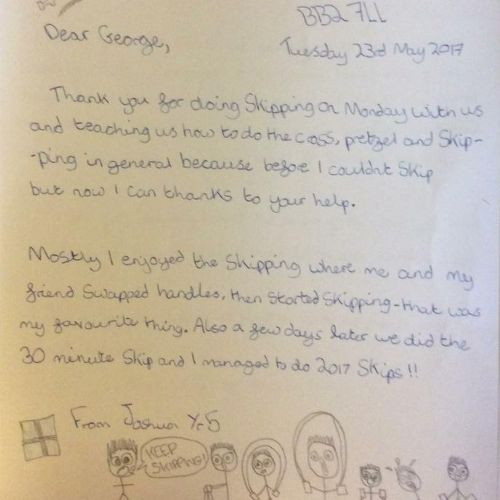 BB2 7LL
Dear George,
Tuesday 23rd May 2017
Thank you for doing Skipping on Monday with us
and teaching us how to do the cross, pretzel and Skip-
-ping in general because before I couldn't Skip
but now I can thanks to your help.
Mostly I enjoyed the Skipping where me and my
friend Swapped handles, then Started Skipping - that was
my favourite thing. Also a few days later we did the
30 minute Skip and I managed to do 2017 Skips!!
From Joshua Yr5
KEEP
SKIPPING!